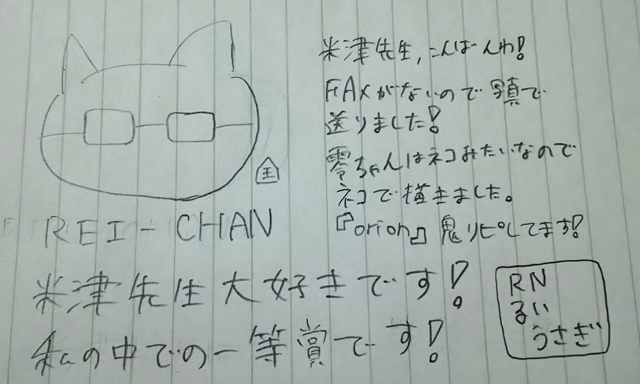 米津先生,こんばんわ!
FAXがないので写真で
送りました!
零ちゃんはネコみたいなので
ネコで描きました。
『orion』鬼リピしてます!
REI-CHAN
米津先生大好きです!
私の中での一等賞です!
RN
るい
うさぎ